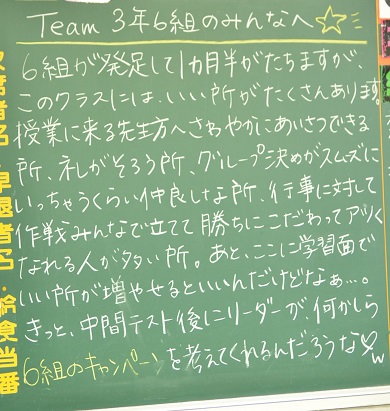 Team 3年6組のみんなへ☆
6組が発足して1カ月半がたちますが、
このクラスには、いい所がたくさんあります。
授業に来る先生方へさわやかにあいさつできる
所、礼がそろう所、グループ決めがスムズに
いっちゃうくらい仲良しな所、行事に対して
作戦みんなで立てて勝ちにこだわってアツく
なれる人が多い所。あと、ここに学習面で
いい所が増やせるといいんだけどなぁ…。
きっと、中間テスト後にリーダーが、何かしら
6組のキャンペーンを考えてくれるんだろうな♡w
欠席者名・早退者名・給食当番